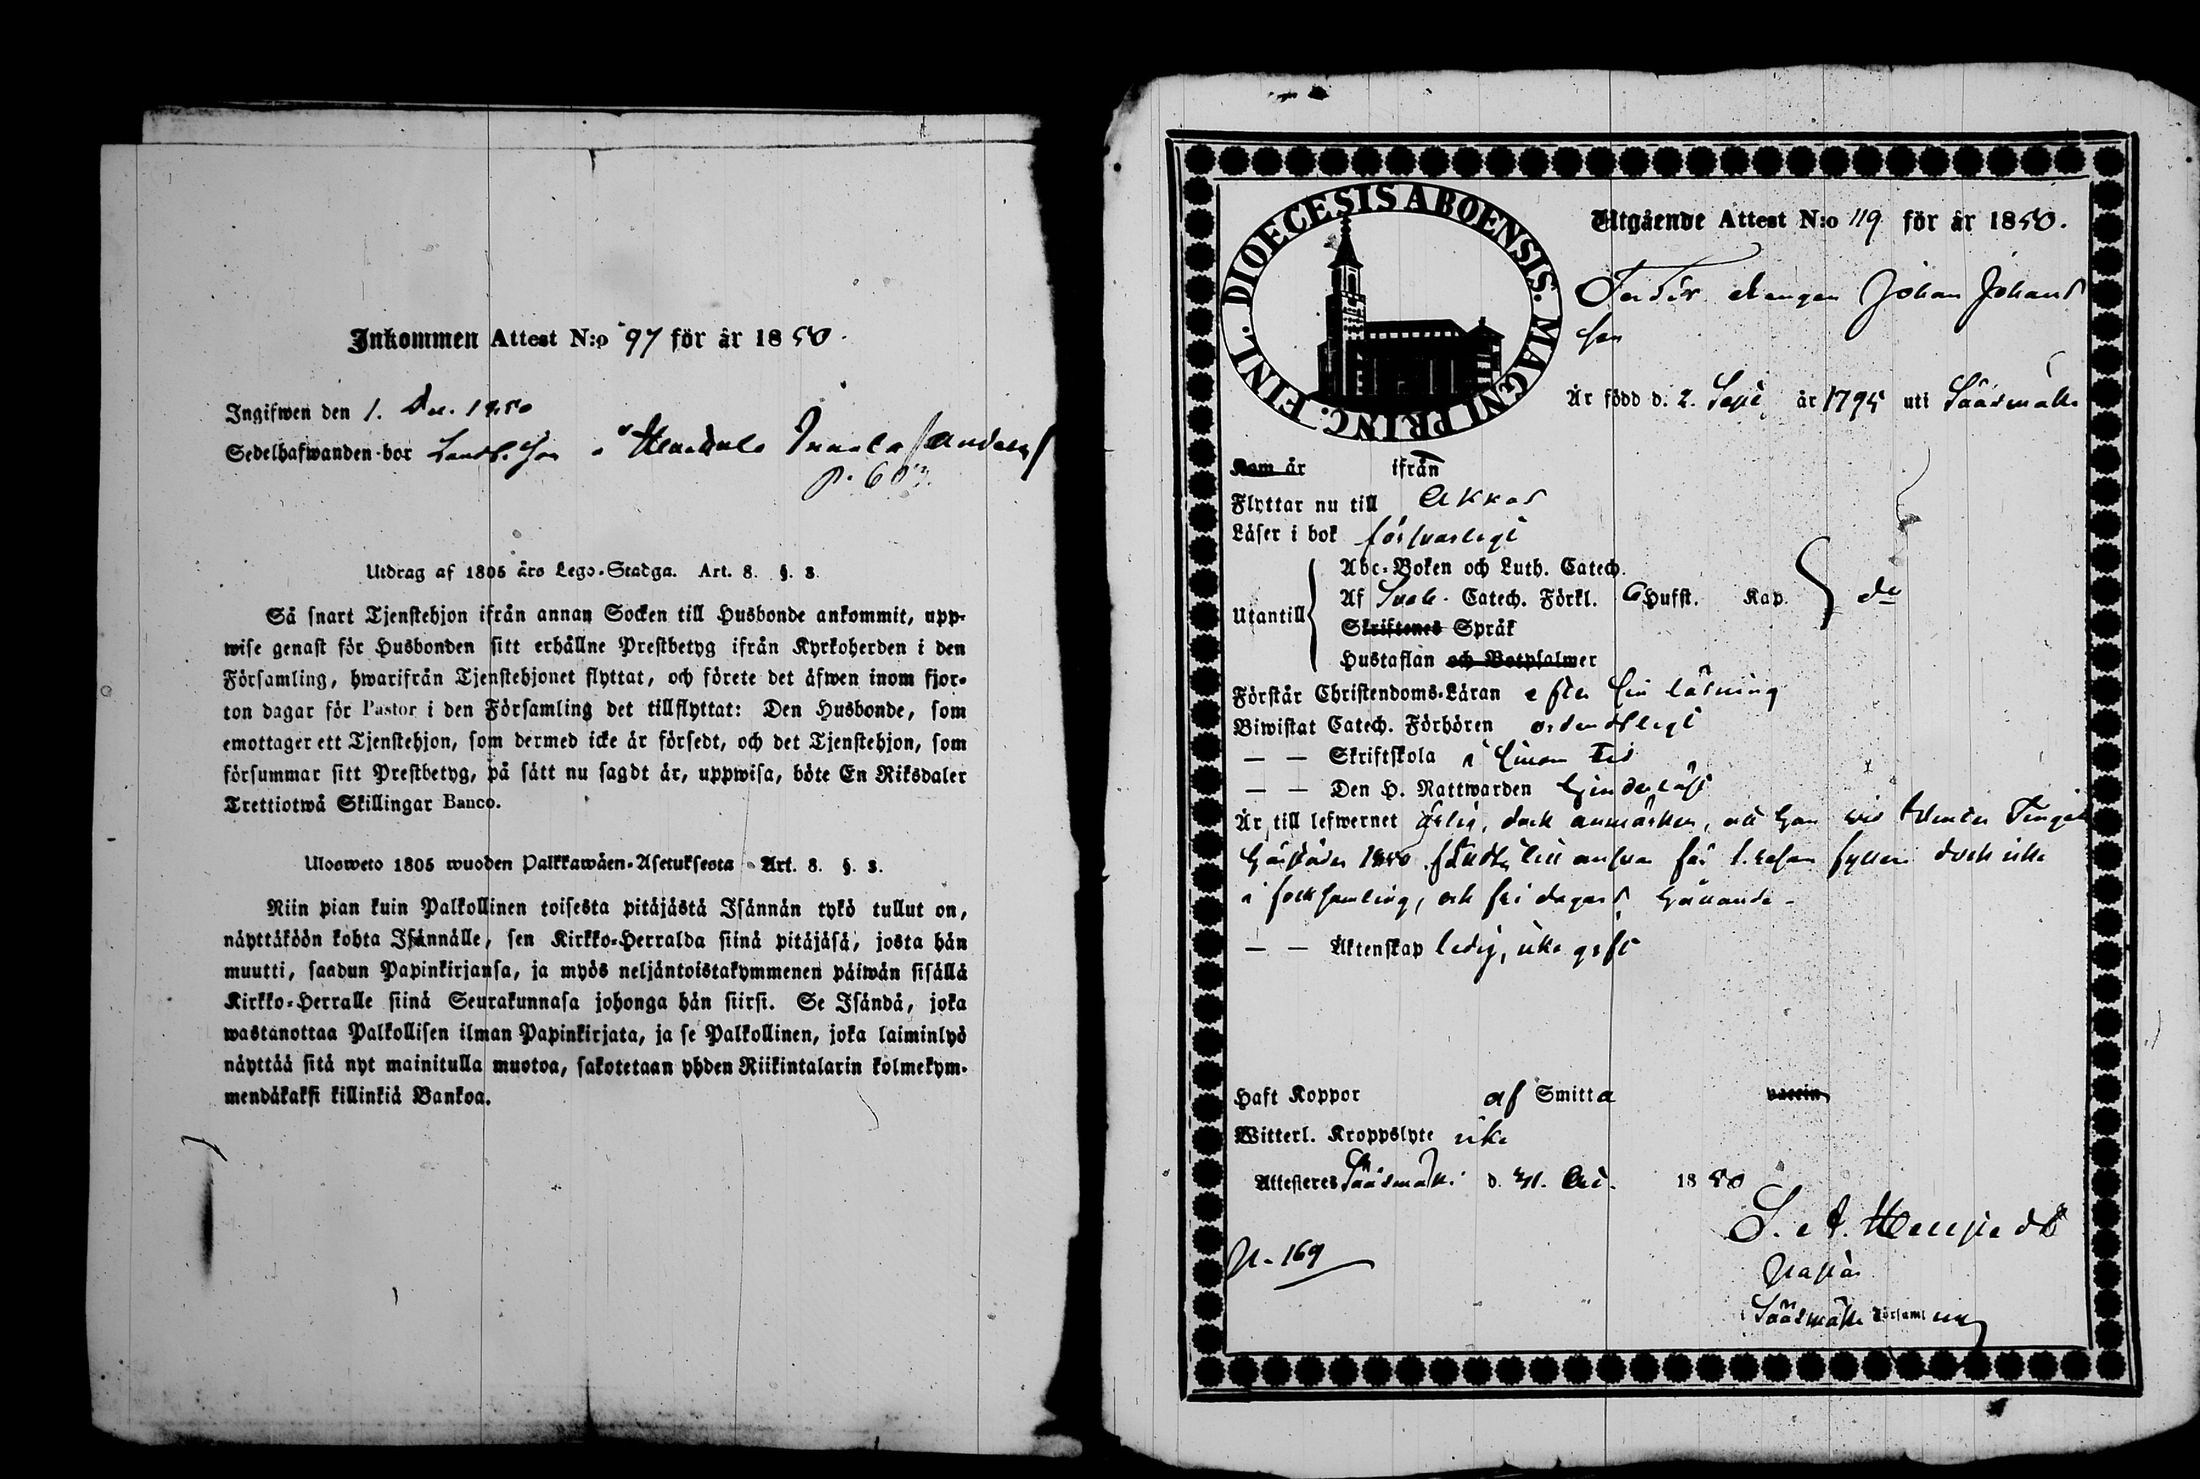 Inkommen Attest N:o 97 för år 1850.
Ingifwen den 1. Dec. 1850
Sedelhafwanden bor hos
p. 603.
Utdrag af 1805 års Lego-Stadga. Art. 8. §. 3.
Så snart Tjenstehjon ifrån annan Socken till Husbonde ankommit, upp-
wise genast för Husbonden sitt erhållne Prestbetyg ifrån Kyrkoherden i den
Församling, hwarifrån Tjenstehjonet flyttat, och förete det äfwen inom fjor-
ton dagar för Pastor i den Församling det tillflyttat: Den Husbonde, som
emottager ett Tjenstehjon, som dermed icke är försedt, och det Tjenstehjon, som
försummar sitt Prestbetyg, på sätt nu sagdt är, uppwisa, böte En Riksdaler
Trettiotwå Skillingar Banco.
Ulosweto 1805 wuoden Palkkawäen-Asetuksesta Art. 8. §. 3.
Niin pian kuin Palkollinen toisesta pitäjästä Isännän tykö tullut on,
näyttäköön kohta Isännälle, sen Kirkko-Herralda siinä pitäjäsä, josta hän
muutti, saadun Papinkirjansa, ja myös neljäntoistakymmenen päiwän sisällä
Kirkko-Herralle siinä Seurakunnasa johonga hän siirsi. Se Isändä, joka
wastanottaa Palkollisen ilman Papinkirjata, ja se Palkollinen, joka laiminlyö
näyttää sitä nyt mainitulla muotoa, sakotetaan yhden Riikintalarin kolmekym-
mendäkaksi killinkiä Bankoa.
FINL. DIOECESIS ABOENSIS. MAGNI PRINC.
Utgående Attest N:o 119 för år 1850.
drängen Johan Johans
son
Är född d. 2. Sept. år 1795 uti Sääksmäki
Kom år ifrån
Flyttar nu till Akkas
Läser i bok försvarligt
Abc-Boken och Luth. Catech.
Af Catech. Förkl. 6 Hufst. Kap. do
Utantill
Skriftenes Språk
Hustaflan och Botpsalmer
Förstår Christendoms-Läran efter sin läsning
Biwistat Catech. Förhören ordentligt
— — Skriftskola i sinom tid
— — Den H. Nattwarden
Är till lefwernet ärlig, dock anmärkes, att han wid Tinget
1850 till answar för fylleri dock icke
i folksamling, och
— — Äktenskap ledig, icke gift
Haft Koppor af Smitta vaccin
Witterl. Kroppslyte icke
Attesteras Sääksmäki d. 31. Oct. 1850
p. 169
Pastor
i Sääksmäki Församling